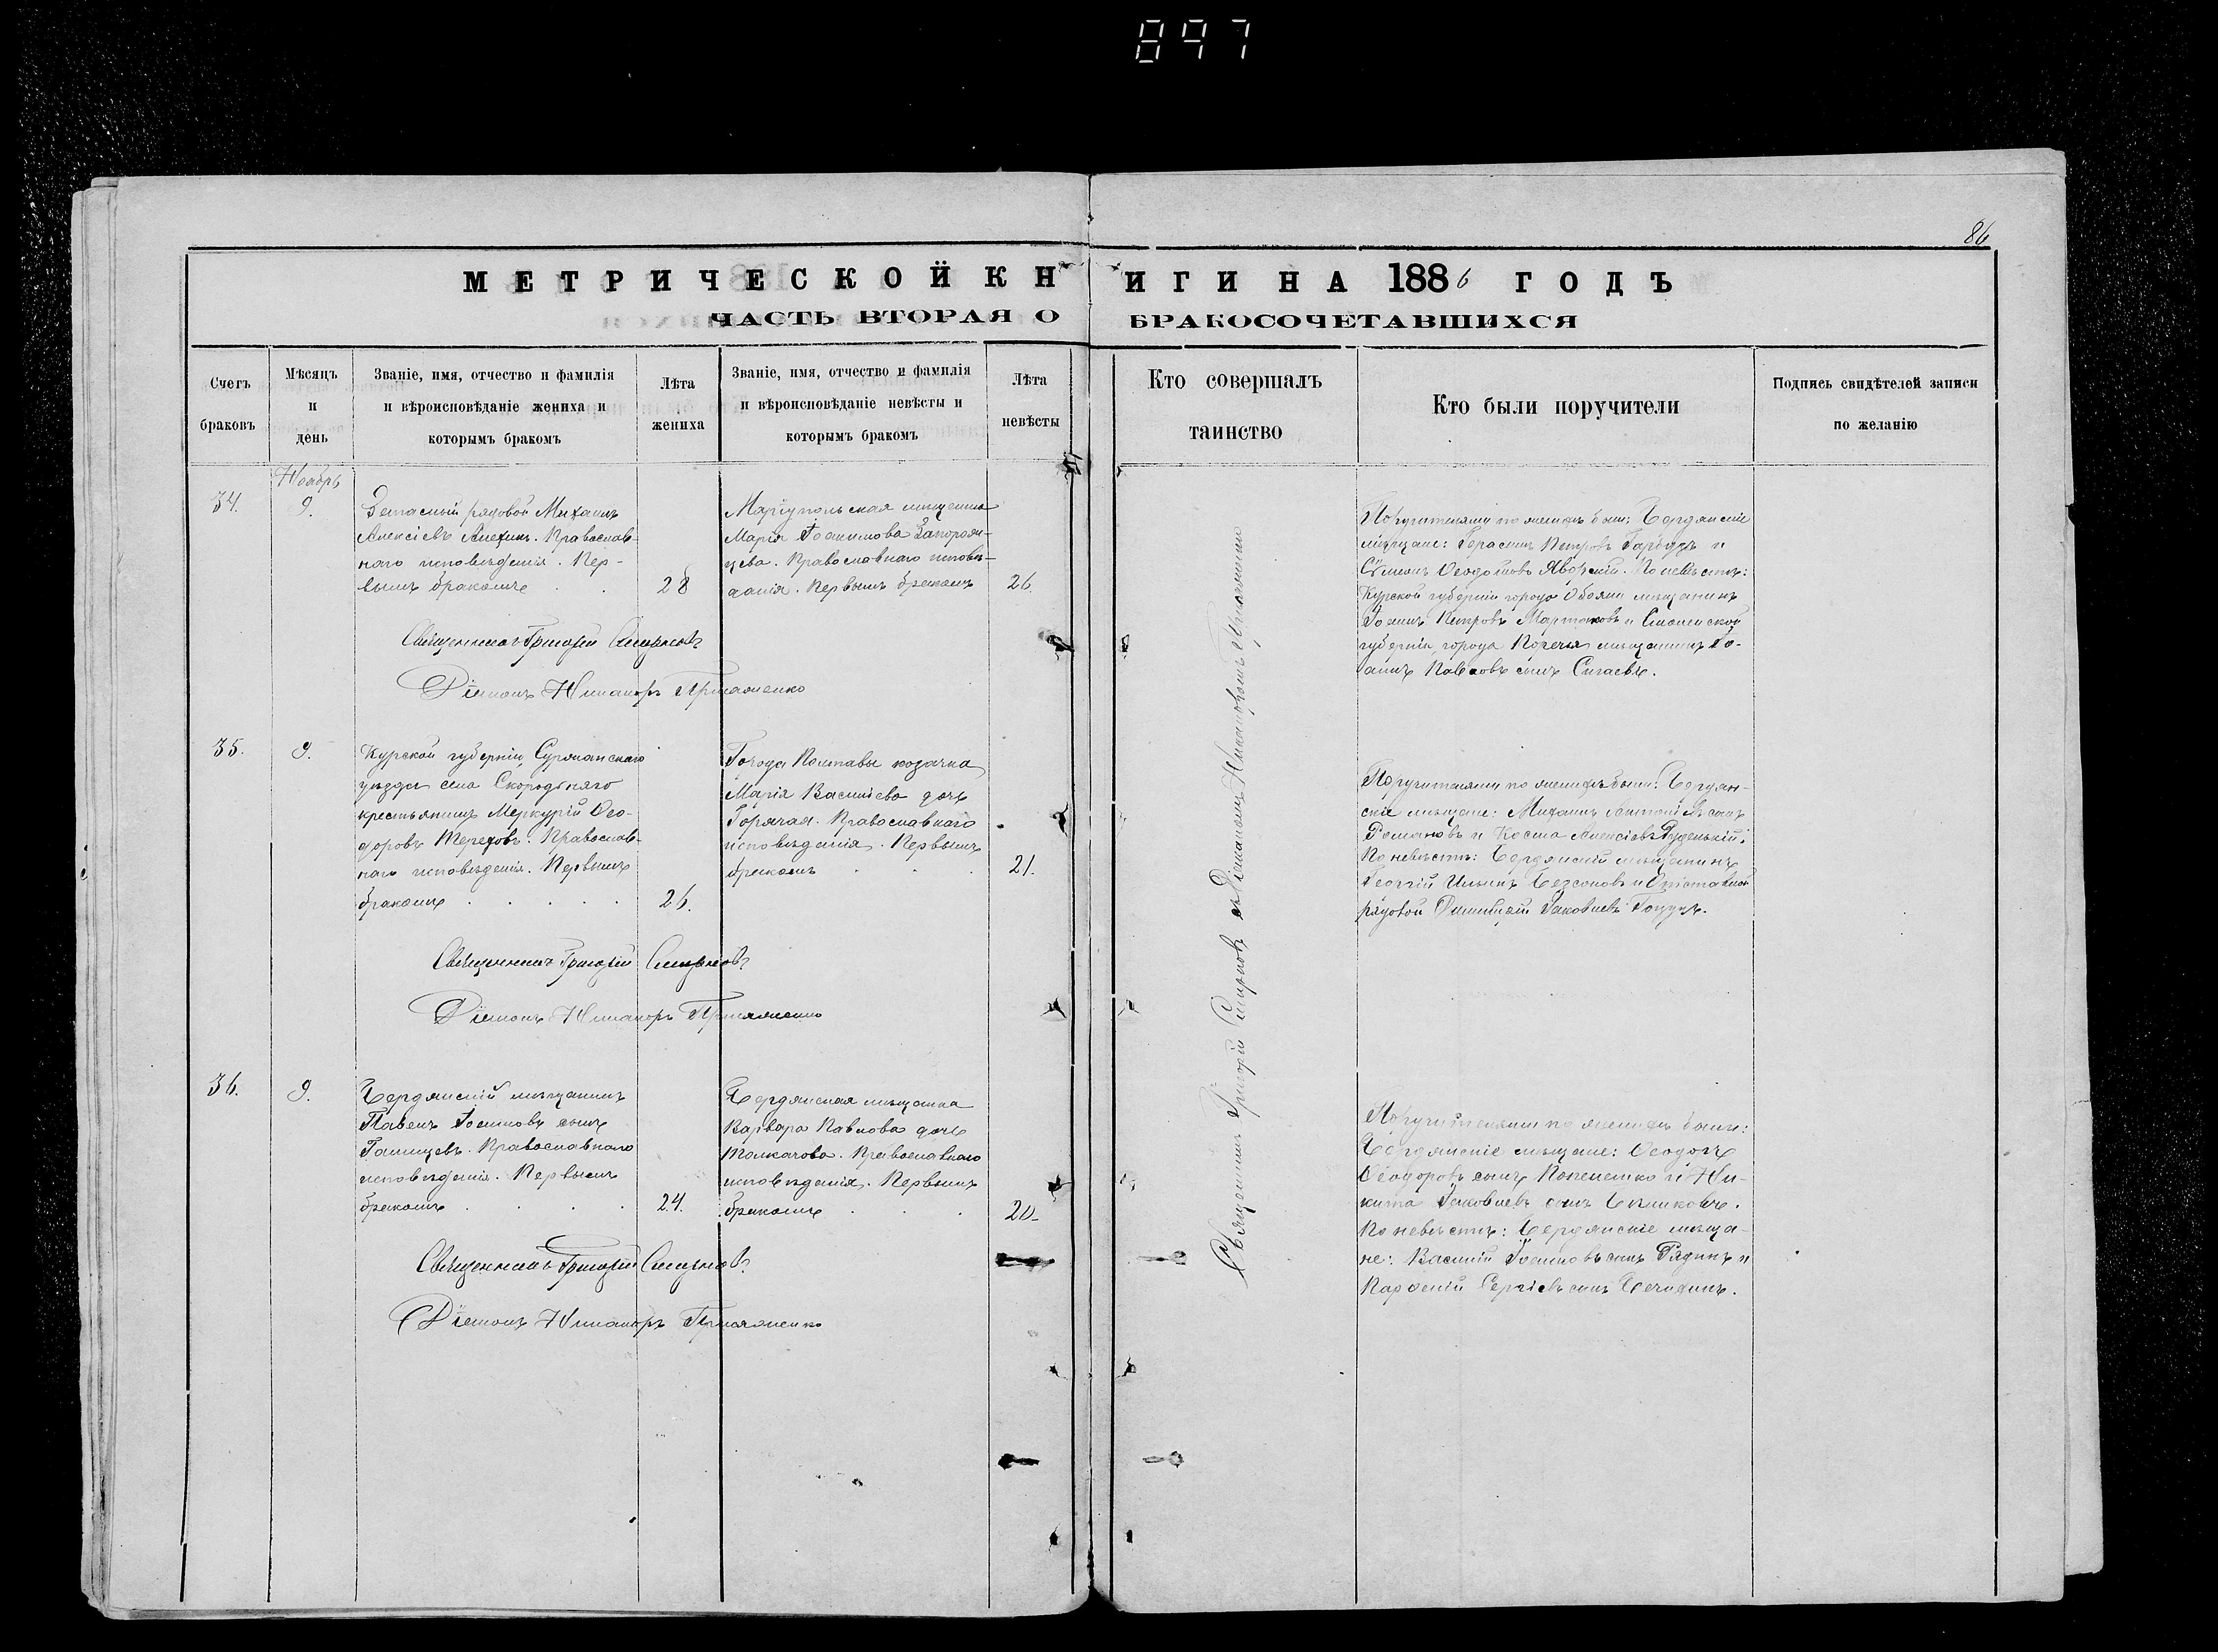 897
86
МЕТРИЧЕСКОЙ КНИГИ НА 1886 ГОДЪ
ЧАСТЬ ВТОРАЯ О БРАКОСОЧЕТАВШИХСЯ
Счетъ
браковъ
Мѣсяцъ
и
день
Званіе, имя, отчество и фамилія
и вѣроисповѣданіе жениха и
которымъ бракомъ
Лѣта
жениха
Званіе, имя, отчество и фамилія
и вѣроисповѣданіе невѣсты и
которымъ бракомъ
Лѣта
невѣсты
Кто совершалъ
таинство
Кто были поручители
Подпись свидѣтелей записи
по желанію
Ноябрь
34.
9.
Запасный рядовой Михаилъ
Алексіевъ Алехинъ. Православ-
наго исповѣданія. Пер-
вымъ бракомъ
28
Маріупольская мѣщанка
Марія Іоакимова Запорож-
цева. Православнаго исповѣ-
данія. Первымъ бракомъ
26.
Поручителями по женихѣ были: Бердянскіе
мѣщане: Герасимъ Петровъ и
Сѵмеонъ Яворскій. По невѣстѣ:
Курской губерніи города Обояни мѣщанинъ
Іоаннъ Петровъ Мартаковъ и Смоленской
губерніи, города Поречья мѣщанинъ Іо-
аннъ Павловъ сынъ Сигаевъ.
Священникъ Григорій Смирновъ
Діаконъ Никаноръ
35.
9.
Курской губерніи, Суржанскаго
уѣзда села Скороднаго
крестьянинъ Меркурій Ѳео-
доровъ Тереховъ. Православ-
наго исповѣданія. Первымъ
бракомъ
26.
Города Полтавы козачка
Марія Васильева дочь
Горячая. Православнаго
исповѣданія. Первымъ
бракомъ
21.
Поручителями по женихѣ были: Бердян-
скіе мѣщане: Михаилъ Антоніевъ сынъ
Романовъ и Косма Алексіевъ Руденькій.
По невѣстѣ: Бердянскій мѣщанинъ
Георгій Ильинъ Безсоновъ и Отставной
рядовой Димитрій Іаковлевъ
Священникъ Григорій Смирновъ
Діаконъ Никаноръ
36.
9.
Бердянскій мѣщанинъ
Павелъ Іоанновъ сынъ
Православнаго
исповѣданія. Первымъ
бракомъ
24.
Бердянская мѣщанка
Варвара Павлова дочь
Толкачова. Православнаго
исповѣданія. Первымъ
бракомъ
20.
Поручителями по женихѣ были:
Бердянскіе мѣщане: Ѳеодоръ
Ѳеодоровъ сынъ и Ни-
кита Іаковлевъ сынъ
По невѣстѣ: Бердянскіе мѣща-
не: Василій Іоанновъ сынъ Рядинъ и
Парѳеній Сергіевъ сынъ
Священникъ Григорій Смирновъ
Діаконъ Никаноръ
Священникъ Григорій Смирновъ съ Діакономъ Никаноромъ